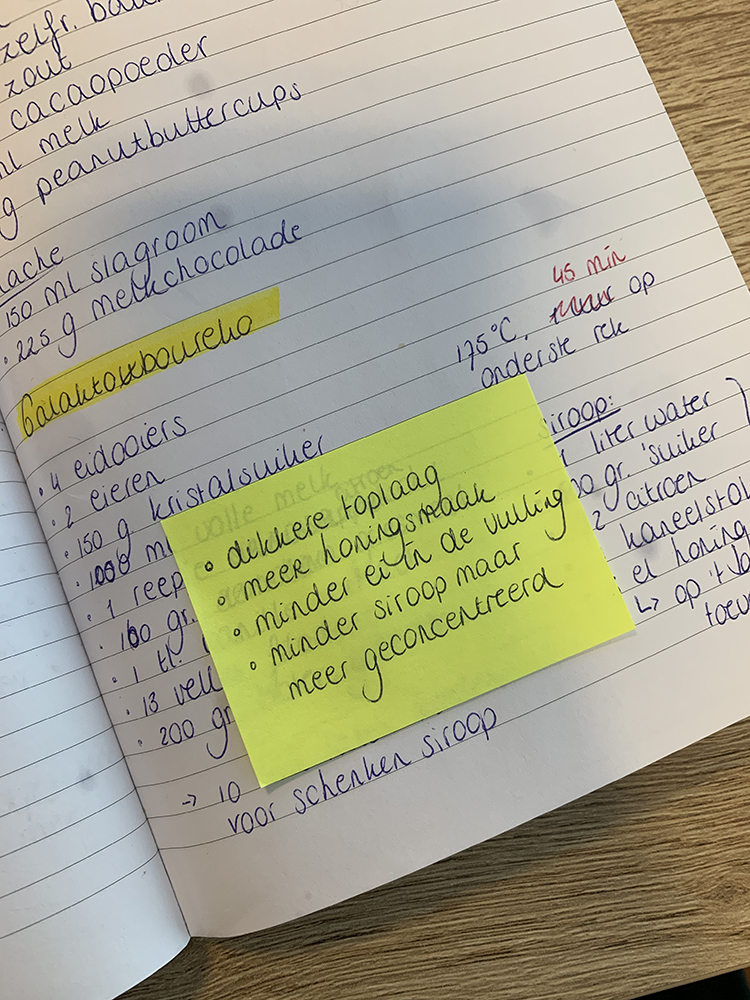 zelfr.
zout
cacaopoeder
ml melk
g peanutbuttercups
ache
150 ml slagroom
• 225 g melkchocolade
Galaktoboureko
45 min
175°C. op
onderste rek
• 4 eidooiers
• 2 eieren
• 150 g kristalsuiker
• 1000 m
• 1 reep
• 160 gr.
• 1 tl.
• 13 velle
• 200 gr
→ 10
voor schenken siroop
siroop:
liter water
00 gr. suiker
2 citroen
kaneelsto
el honing
↳ op 't la
toev
• dikkere toplaag
• meer honingsmaak
• minder ei in de vulling
• minder siroop maar
meer geconcentreerd